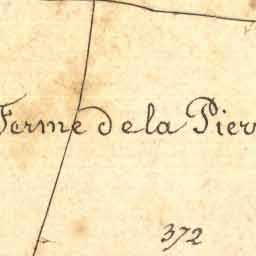 Ferme de la Pier
372